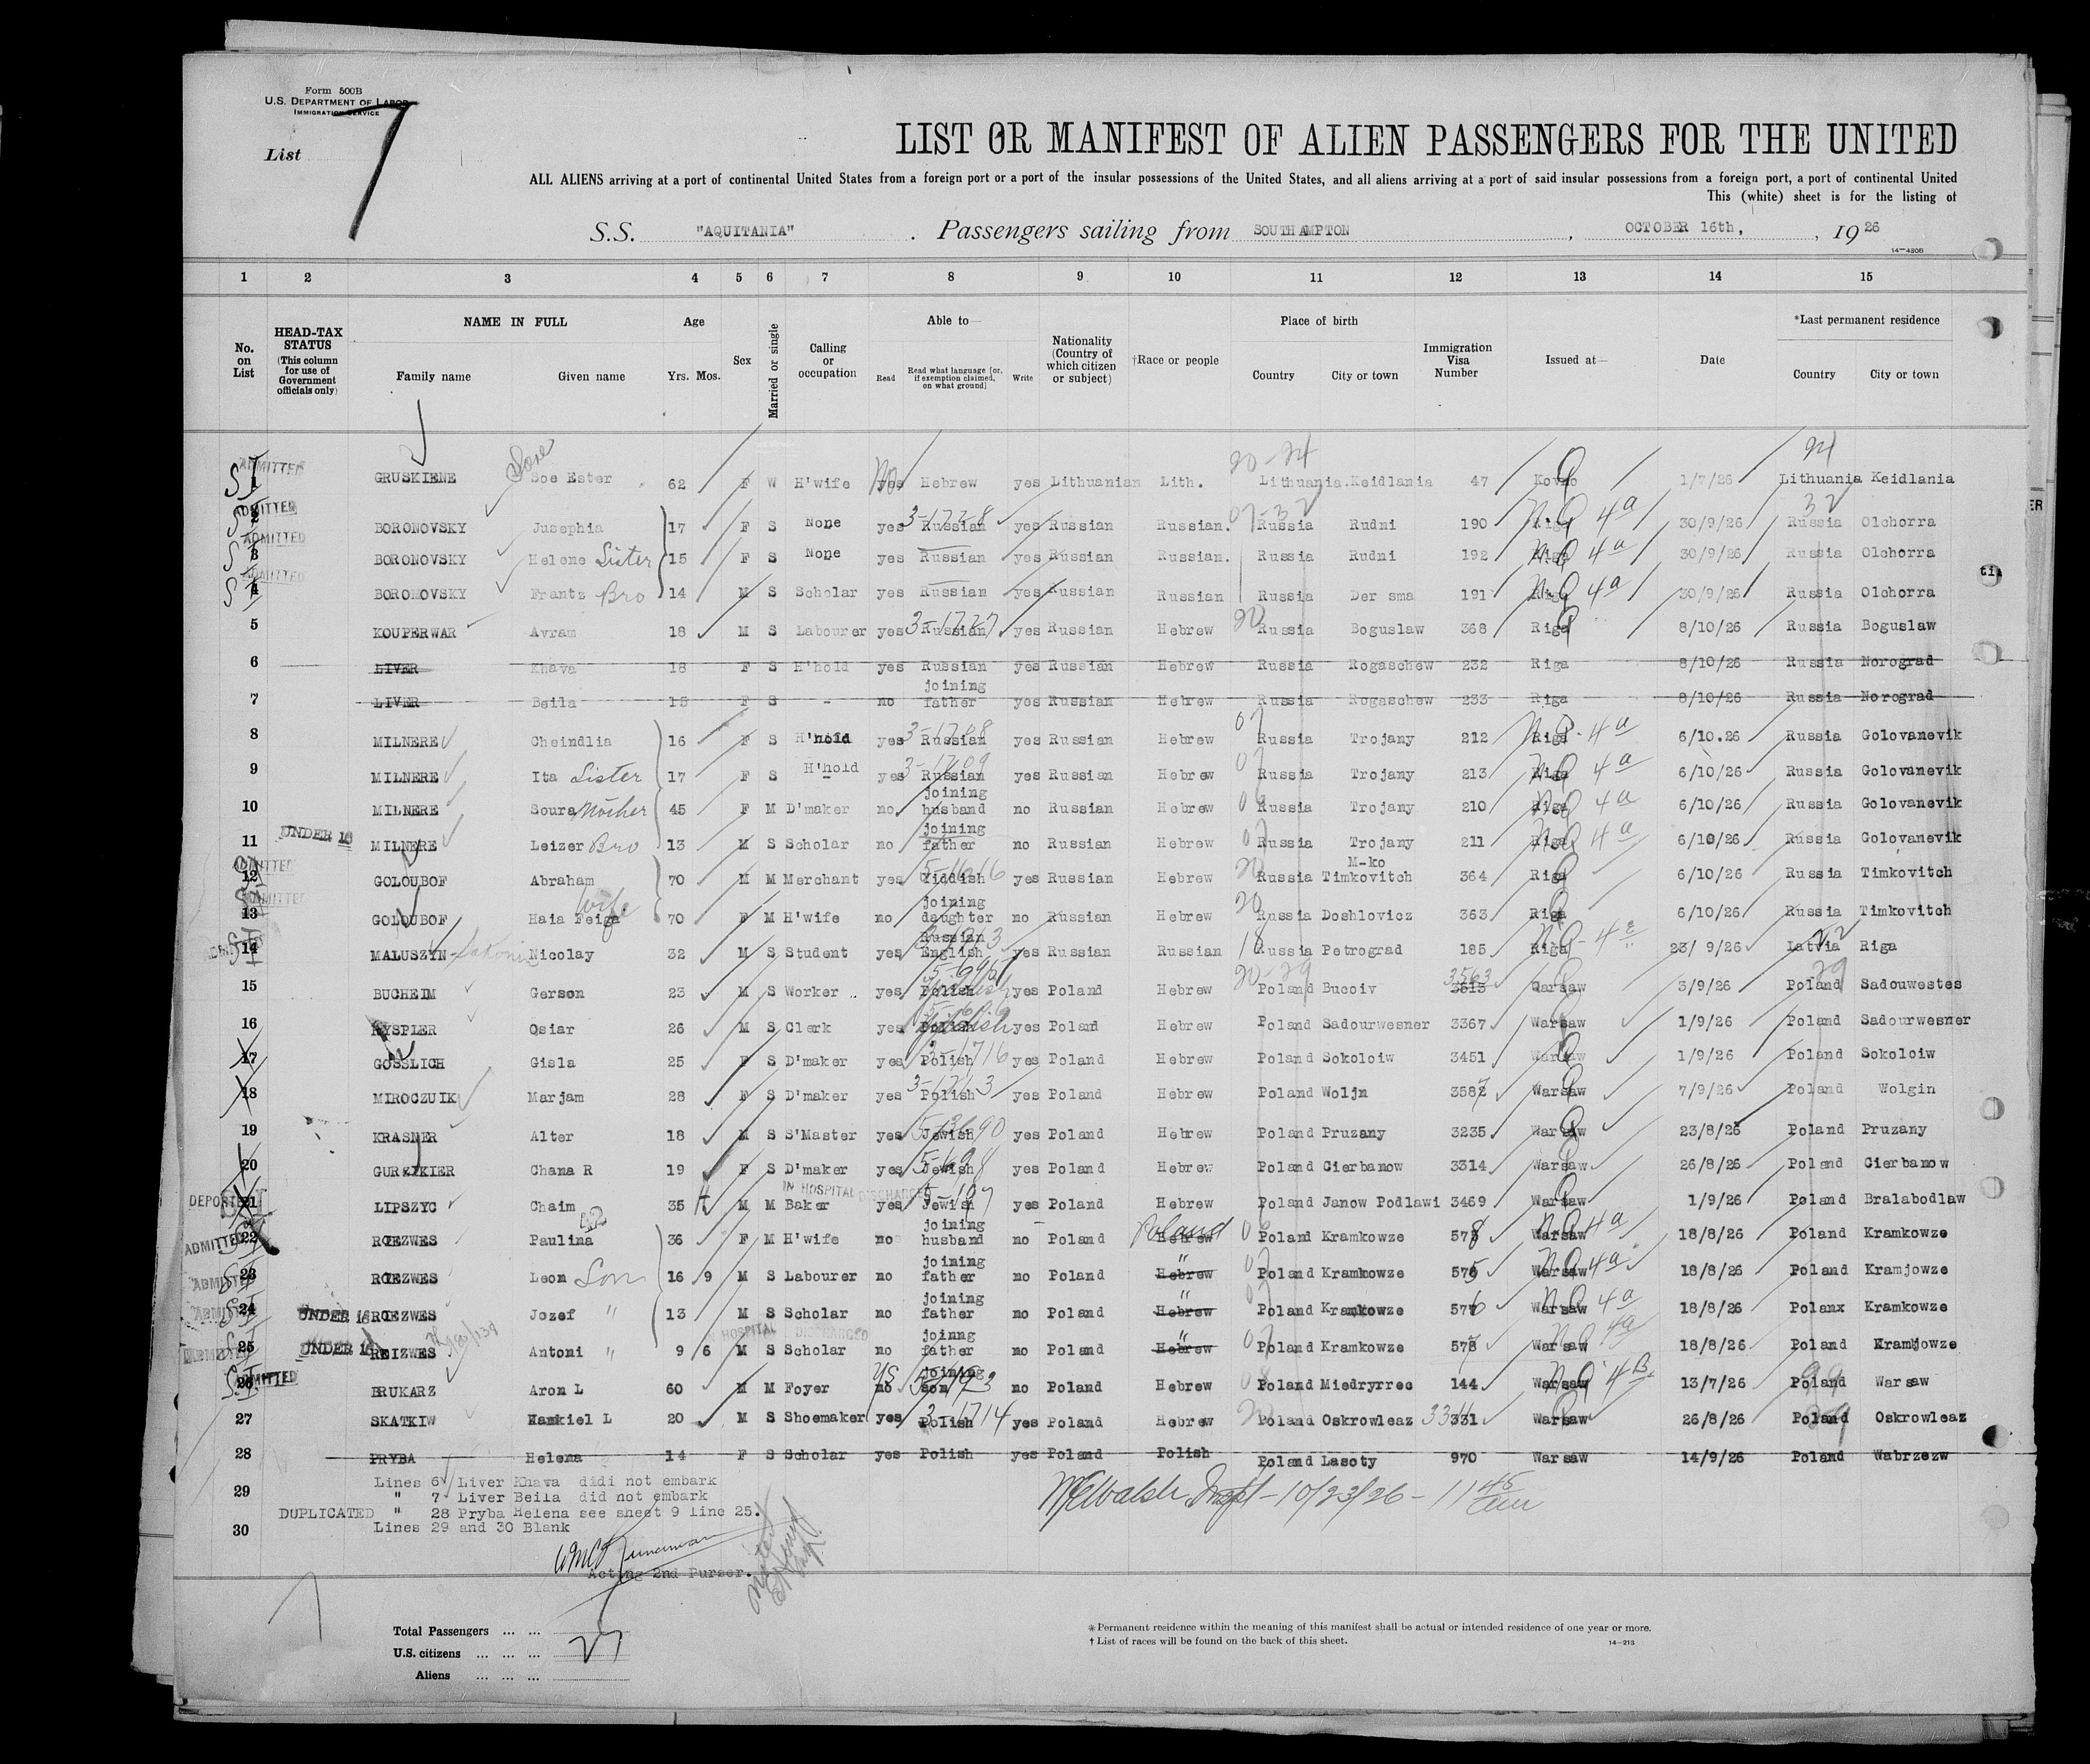 Form 500B
U.S. DEPARTMENT OF LABOR
IMMIGRATION SERVICE
List 7
LIST OR MANIFEST OF ALIEN PASSENGERS FOR THE UNITED
ALL ALIENS arriving at a port of continental United States from a foreign port or a port of the insular possessions of the United States, and all aliens arriving at a port of said insular possessions from a foreign port, a port of continental United
This (white) sheet is for the listing of
S.S. "AQUITANIA" . Passengers sailing from SOUTHAMPTON , OCTOBER 16th, , 19 26
14—420B
1 2 3 4 5 6 7 8 9 10 11 12 13 14 15
No. on List
HEAD-TAX STATUS (This column for use of Government officials only)
NAME IN FULL Family name Given name
Age Yrs. Mos.
Sex
Married or single
Calling or occupation
Able to— Read Read what language [or, if exemption claimed, on what ground] Write
Nationality (Country of which citizen or subject)
†Race or people
Place of birth Country City or town
Immigration Visa Number
Issued at—
Date
*Last permanent residence Country City or town
ADMITTED 1 GRUSKIENE Soe Ester 62 F W H'wife No yes Hebrew yes Lithuanian Lith. Lithuania. Keidlania 47 Kovno 1/7/26 Lithuania Keidlania
ADMITTED 2 BORONOVSKY Jusephia 17 F S None yes Russian yes Russian Russian. Russia Rudni 190 Riga 4a 30/9/26 Russia Olchorra
ADMITTED 3 BORONOVSKY Helene Sister 15 F S None yes Russian yes Russian Russian. Russia Rudni 192 Riga 4a 30/9/26 Russia Olchorra
ADMITTED 4 BORONOVSKY Frantz Bro 14 M S Scholar yes Russian yes Russian Russian Russia Der sma 191 Riga 4a 30/9/26 Russia Olchorra
5 KOUPERWAR Avram 18 M S Labourer yes Russian yes Russian Hebrew Russia Boguslaw 368 Riga 8/10/26 Russia Boguslaw
6 LIVER Khava 18 F S H'hold yes Russian yes Russian Hebrew Russia Rogaschew 232 Riga 8/10/26 Russia Norograd
7 LIVER Beila 15 F S - no joining father yes Russian Hebrew Russia Rogaschew 233 Riga 8/10/26 Russia Norograd
8 MILNERE Cheindlia 16 F S H'hold yes Russian yes Russian Hebrew Russia Trojany 212 Riga 4a 6/10.26 Russia Golovanevik
9 MILNERE Ita Sister 17 F S H'hold yes Russian yes Russian Hebrew Russia Trojany 213 Riga 4a 6/10/26 Russia Golovanevik
10 MILNERE Soura Mother 45 F M D'maker no joining husband no Russian Hebrew Russia Trojany 210 Riga 4a 6/10/26 Russia Golovanevik
11 UNDER 16 MILNERE Leizer Bro 13 M S Scholar no joining father no Russian Hebrew Russia Trojany 211 Riga 4a 6/10/26 Russia Golovanevik
ADMITTED 12 GOLOUBOF Abraham 70 M M Merchant yes Yiddish yes Russian Hebrew Russia Timkovitch M-ko 364 Riga 6/10/26 Russia Timkovitch
ADMITTED 13 GOLOUBOF Haia Feiga Wife 70 F M H'wife no joining daughter no Russian Hebrew Russia Doshlovicz 363 Riga 6/10/26 Russia Timkovitch
14 MALUSZYN Nicolay 32 M S Student yes Russian English yes Russian Russian Russia Petrograd 185 Riga 23/ 9/26 Latvia Riga
15 BUCHEIM Gerson 23 M S Worker yes Polish yes Poland Hebrew Poland Bucoiv 3563 3513 Warsaw 3/9/26 Poland Sadouwestes
16 RYSPLER Osiar 26 M S Clerk yes Polish yes Poland Hebrew Poland Sadourwesner 3367 Warsaw 1/9/26 Poland Sadourwesner
17 GOSSLICH Gisla 25 F S D'maker yes Polish yes Poland Hebrew Poland Sokoloiw 3451 Warsaw 1/9/26 Poland Sokoloiw
18 MIROCZUIK Marjam 28 F S D'maker yes Polish yes Poland Hebrew Poland Woljn 3587 Warsaw 7/9/26 Poland Wolgin
19 KRASNER Alter 18 M S S'Master yes Jewish yes Poland Hebrew Poland Pruzany 3235 Warsaw 23/8/26 Poland Pruzany
20 GURFIKIER Chana R 19 F S D'maker yes Jewish yes Poland Hebrew Poland Cierbanow 3314 Warsaw 26/8/26 Poland Cierbanow
DEPORTED 21 LIPSZYC Chaim 35 M M Baker IN HOSPITAL DISCHARGED yes Jewish yes Poland Hebrew Poland Janow Podlawi 3469 Warsaw 1/9/26 Poland Bralabodlaw
ADMITTED 22 ROEZWES Paulina 36 F M H'wife no joining husband no Poland Poland Hebrew Poland Kramkowze 578 Warsaw 4a 18/8/26 Poland Kramkowze
ADMITTED 23 ROEZWES Leon Son 16 9 M S Labourer no joining father no Poland " Hebrew Poland Kramkowze 575 Warsaw 4a 18/8/26 Poland Kramjowze
ADMITTED 24 UNDER 16 ROEZWES Jozef " 13 M S Scholar no joining father no Poland " Hebrew Poland Kramkowze 576 Warsaw 4a 18/8/26 Polanx Kramkowze
ADMITTED 25 UNDER 16 REIZWES Antoni " 9 6 M S Scholar IN HOSPITAL DISCHARGED no joinng father no Poland " Hebrew Poland Kramkowze 577 Warsaw 4a 18/8/26 Poland Kramjowze
ADMITTED 26 BRUKARZ Aron L 60 M M Foyer no joining son no Poland Hebrew Poland Miedryrrec 144 Warsaw 4B 13/7/26 Poland Warsaw
27 SKATKIW Hamkiel L 20 M S Shoemaker yes Polish yes Poland Hebrew Poland Oskrowleaz 331 Warsaw 26/8/26 Poland Oskrowleaz
28 PRYBA Helena 14 F S Scholar yes Polish yes Poland Polish Poland Lasoty 970 Warsaw 14/9/26 Poland Wabrzezw
Lines 6 Liver Khava didi not embark
29 " 7 Liver Beila did not embark
DUPLICATED " 28 Pryba Helena see sheet 9 line 25.
30 Lines 29 and 30 Blank
Walsh Inspt - 10/23/26 - 11 45 am
Acting 2nd Purser.
Total Passengers ... ...
27
U.S. citizens ... ... ...
Aliens ... ... ...
* Permanent residence within the meaning of this manifest shall be actual or intended residence of one year or more.
† List of races will be found on the back of this sheet.
14—213